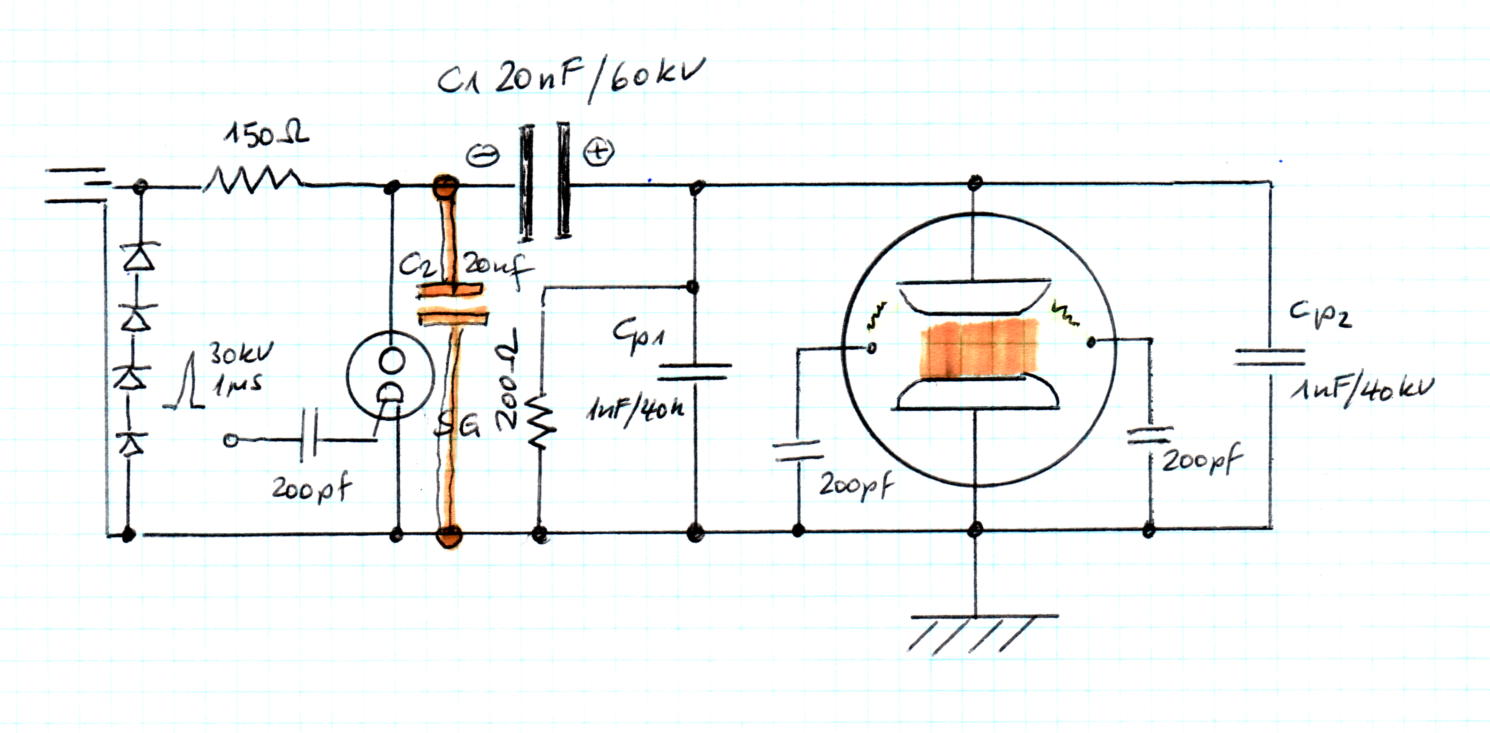 C1 20nF/60kV
150Ω
⊖ ⊕
C2 20nf
30kV
1µs
SG
200Ω
Cp1
1nF/40k
200pf
200pf
200pf
Cp2
1nF/40kV